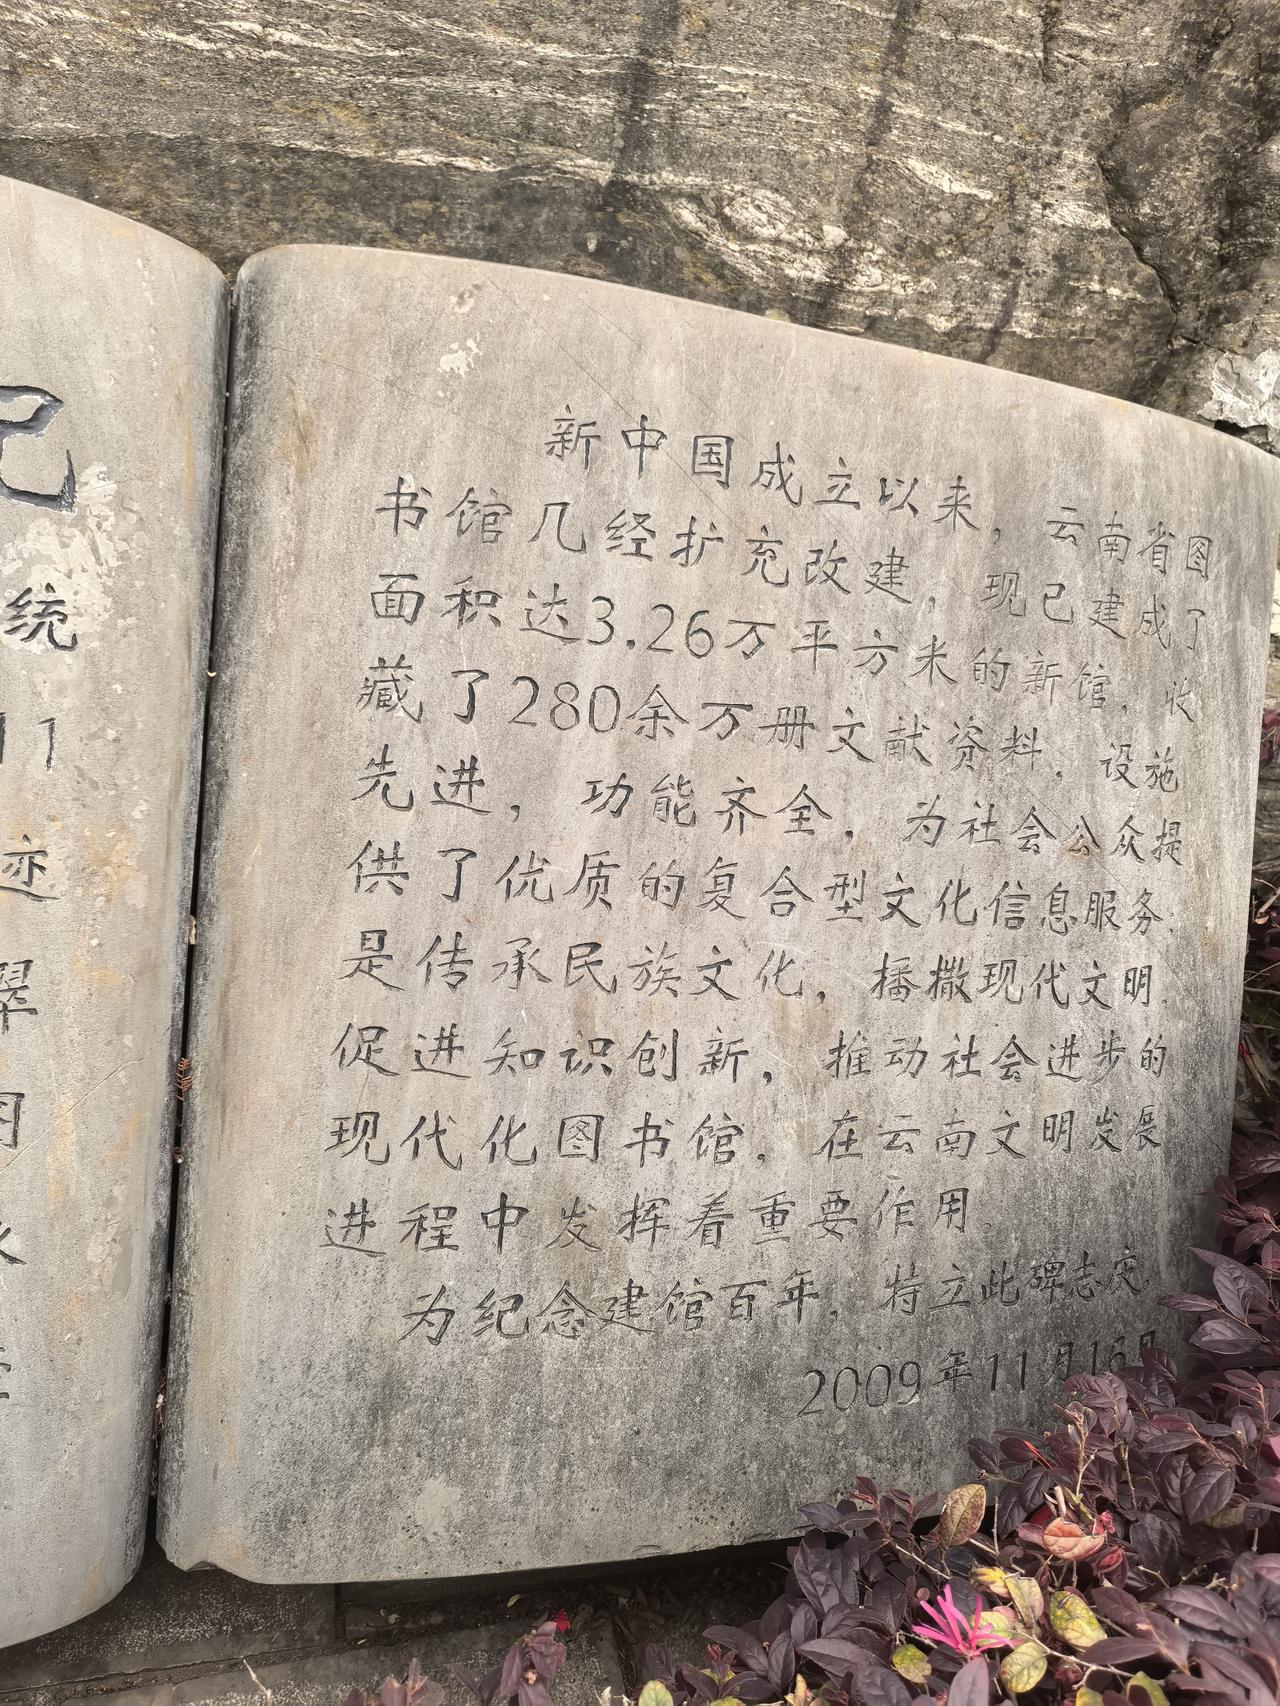 记
统
11
迹
翠
新中国成立以来，云南省图
书馆几经扩充改建，现已建成了
面积达3.26万平方米的新馆，收
藏了280余万册文献资料，设施
先进，功能齐全，为社会公众提
供了优质的复合型文化信息服务；
是传承民族文化，播撒现代文明，
促进知识创新，推动社会进步的
现代化图书馆，在云南文明发展
进程中发挥着重要作用。
为纪念建馆百年，特立此碑志庆
2009年11月16日